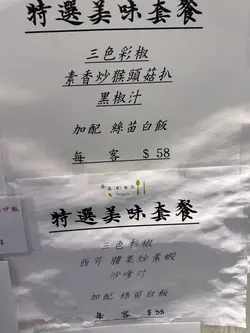 特選美味套餐
三色彩椒
素香炒猴頭菇扒
黑椒汁
加配 絲苗白飯
每 客 $58
特選美味套餐
三色彩椒
西芹 腰果炒素蝦
沙嗲汁
加配 絲苗白飯
每 客 $58